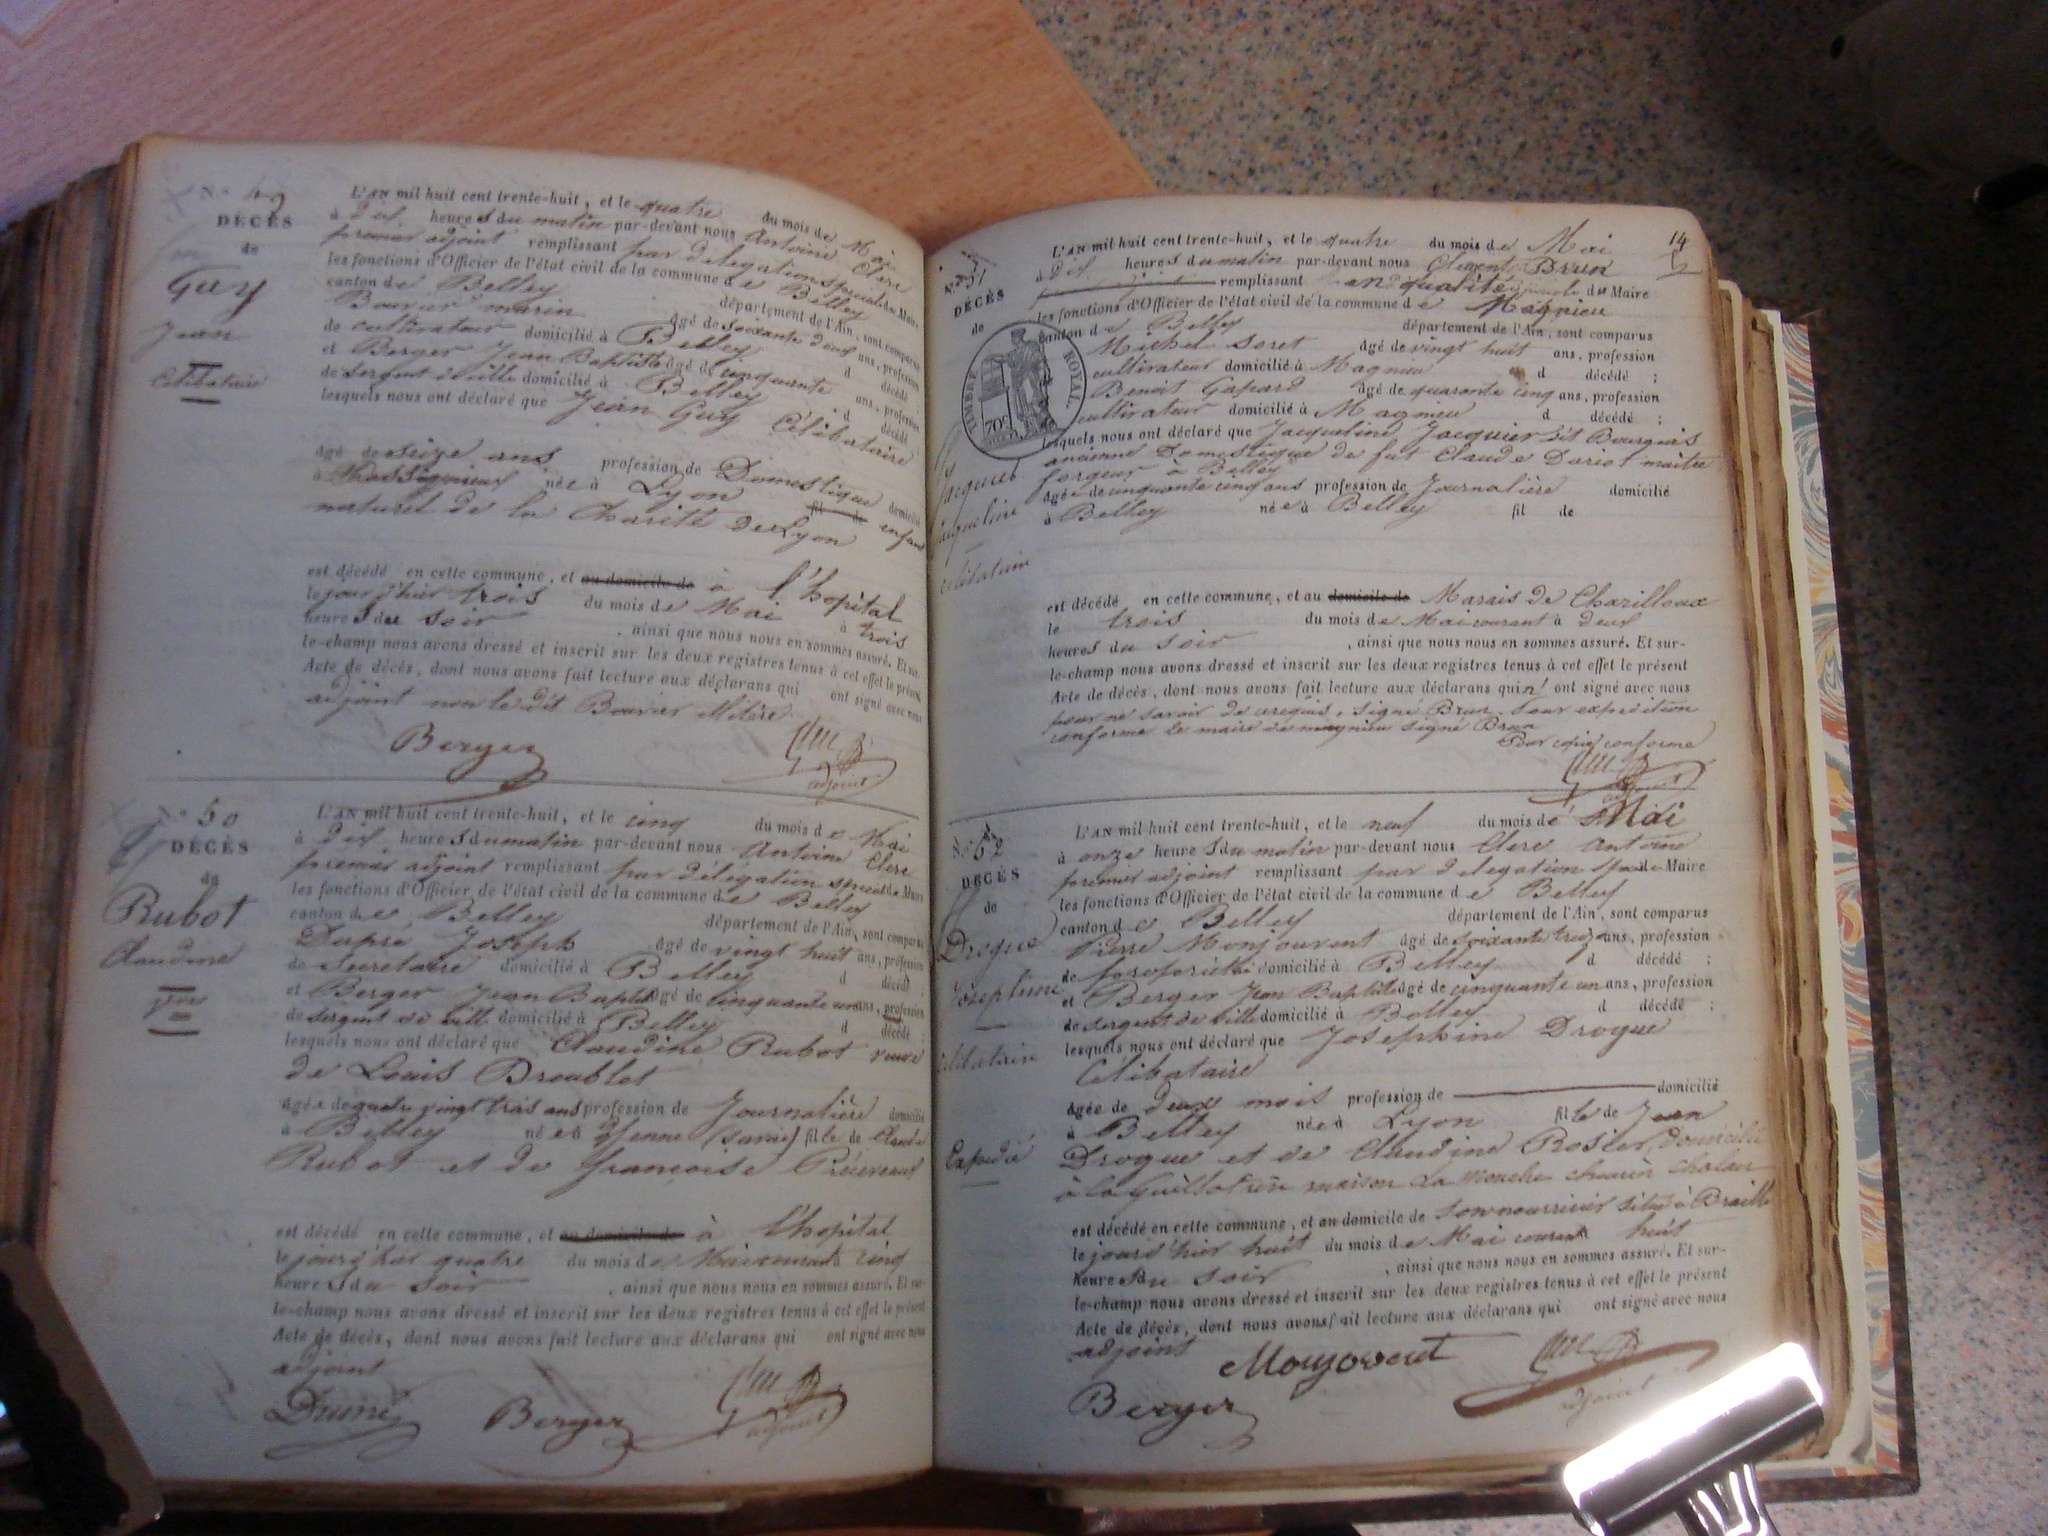 N° 49
DÉCÈS
de
Guy
Jean
Célibataire
L'AN mil huit cent trente-huit, et le quatre du mois de Mai
à dix heures du matin par-devant nous Antoine Clerc
premier adjoint remplissant par délégation spéciale du Maire
les fonctions d'Officier de l'état civil de la commune de Belley
canton de Belley département de l'Ain, sont comparus
Bouvier agé de soixante deux ans, profession
de cultivateur domicilié à Belley d décédé
et Berger Jean Baptiste agé de cinquante ans, profession
de sergent de ville domicilié à Belley d décédé
lesquels nous ont déclaré que Jean Guy Célibataire
agé de seize ans profession de Domestique domicilié
à né à Lyon fil de enfant
naturel de la Charité de Lyon
est décédé en cette commune, et au domicile de à l'hopital
le jour d'hier trois du mois de Mai à trois
heures du soir , ainsi que nous nous en sommes assuré. Et sur-
le-champ nous avons dressé et inscrit sur les deux registres tenus à cet effet le présent
Acte de décès, dont nous avons fait lecture aux déclarans qui ont signé avec nous
adjoint non le dit Bouvier
Berger
adjoint
N° 50
DÉCÈS
de
Rubot
Claudine
Vve
L'AN mil huit cent trente-huit, et le cinq du mois de Mai
à dix heures du matin par-devant nous Antoine Clerc
premier adjoint remplissant par délégation spéciale du Maire
les fonctions d'Officier de l'état civil de la commune de Belley
canton de Belley département de l'Ain, sont comparus
Joseph agé de vingt huit ans, profession
de Secrétaire domicilié à Belley d décédé
et Berger Jean Baptiste agé de cinquante un ans, profession
de sergent de ville domicilié à Belley d décédé
lesquels nous ont déclaré que Claudine Rubot veuve
de Louis Droublet
agée de quatre vingt trois ans profession de Journalière domicilié
à Belley née à Yenne (Savoie) fille de Claude
Rubot et de françoise
est décédé en cette commune, et au domicile de à l'hopital
le jour d'hier quatre du mois de Mai courant à cinq
heures du soir , ainsi que nous nous en sommes assuré. Et sur-
le-champ nous avons dressé et inscrit sur les deux registres tenus à cet effet le présent
Acte de décès, dont nous avons fait lecture aux déclarans qui ont signé avec nous
adjoint
Berger
adjoint
14
N° 51
DÉCÈS
de
Jacquier
Jacqueline
Célibataire
TIMBRE ROYAL
70c
L'AN mil huit cent trente-huit, et le quatre du mois de Mai
à dix heures du matin par-devant nous Clement Brun
remplissant en qualité du Maire
les fonctions d'Officier de l'état civil de la commune de Magnieu
canton de Belley département de l'Ain, sont comparus
Michel Soret agé de vingt huit ans, profession
cultivateur domicilié à Magnieu d décédé ;
Benoit Gapard agé de quarante cinq ans, profession
cultivateur domicilié à Magnieu d décédé ;
lesquels nous ont déclaré que Jacqueline Jacquier dit Bourgeois
ancienne Domestique de fut Claude Doriot maitre
forgeur à Belley
agée de cinquante cinq ans profession de Journalière domicilié
à Belley née à Belley fil de
est décédé en cette commune, et au domicile de Marais de Charilloux
le trois du mois de Mai courant à deux
heures du soir , ainsi que nous nous en sommes assuré. Et sur-
le-champ nous avons dressé et inscrit sur les deux registres tenus à cet effet le présent
Acte de décès, dont nous avons fait lecture aux déclarans qui n' ont signé avec nous
pour ne savoir de ce requis, signé Brun. Pour expedition
conforme le maire de magnieu signé Brun
Pour copie conforme
adjoint
N° 52
DÉCÈS
de
Drogue
Josephine
Célibataire
Expédié
L'AN mil huit cent trente-huit, et le neuf du mois de Mai
à onze heures du matin par-devant nous Clerc Antoine
premier adjoint remplissant par délégation spéciale Maire
les fonctions d'Officier de l'état civil de la commune de Belley
canton de Belley département de l'Ain, sont comparus
Pierre Monjouvent agé de soixante treize ans, profession
de propriétaire domicilié à Belley d décédé ;
et Berger Jean Baptiste agé de cinquante un ans, profession
de sergent de ville domicilié à Belley d décédé ;
lesquels nous ont déclaré que Josephine Drogue
Célibataire
agée de deux mois profession de domicilié
à Belley née à Lyon fille de Jean
Drogue et de Claudine Rosier domicilié
à la Guillotière maison La Mouche chemin
est décédé en cette commune, et au domicile de son nourricier situé à
le jour d'hier huit du mois de Mai courant à huit
heures du soir , ainsi que nous nous en sommes assuré. Et sur-
le-champ nous avons dressé et inscrit sur les deux registres tenus à cet effet le présent
Acte de décès, dont nous avons fait lecture aux déclarans qui ont signé avec nous
adjoint
Monjovent
Berger
adjoint